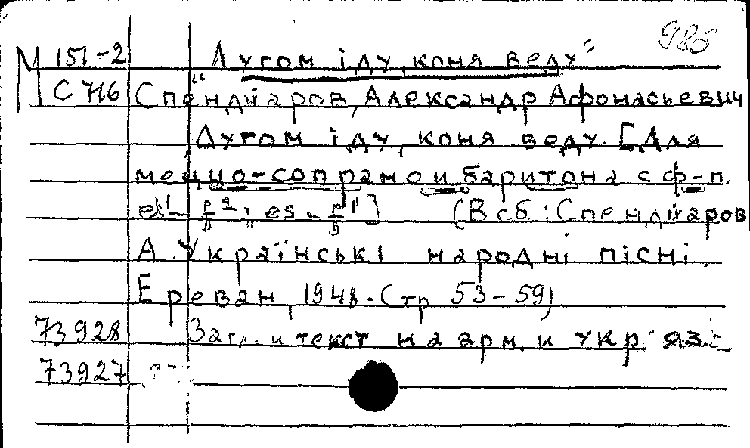 986
М 151-2 „Лугом іду, коня веду"
С 716 Спендиаров, Александр Афонасьевич
Лугом іду, коня веду. [Для
меццо-сопрано и баритона с ф-п.
es - f
(В сб: Спендиаров
А. Українські народні пісні.
Ереван, 1948. Стр 53-59)
73928 Загл. и текст на арм. и укр яз
73927